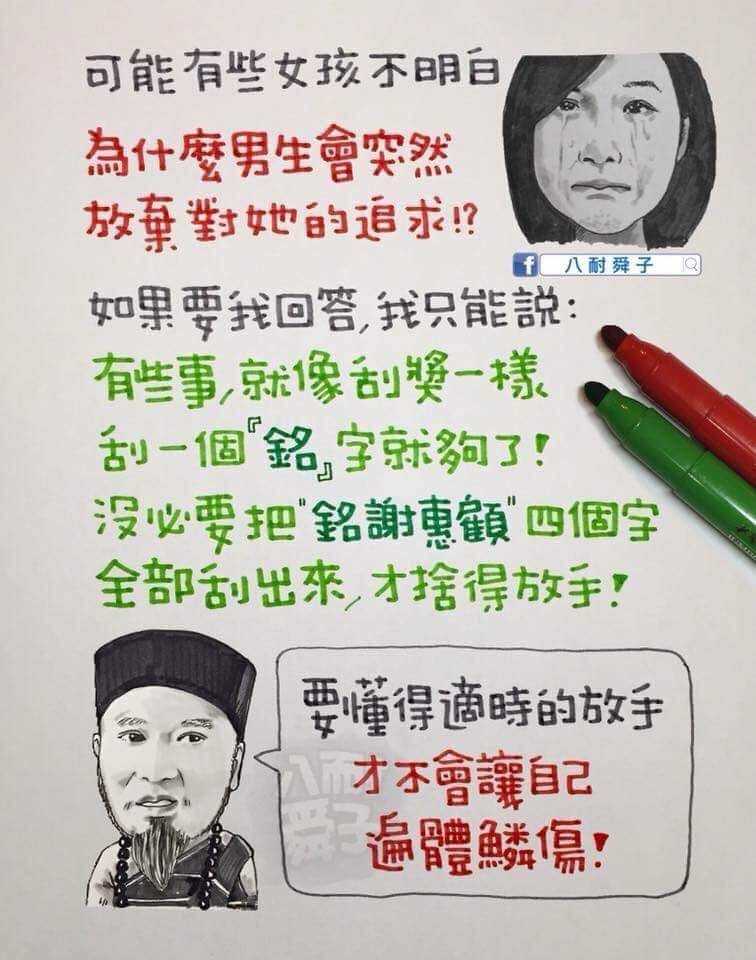 可能有些女孩不明白
為什麼男生會突然
放棄對她的追求!?
f 八耐舜子
如果要我回答,我只能説:
有些事,就像刮獎一樣
刮一個『銘』字就夠了!
沒必要把"銘謝惠顧"四個字
全部刮出來,才捨得放手!
要懂得適時的放手
才不會讓自己
遍體鱗傷!
八耐
舜子